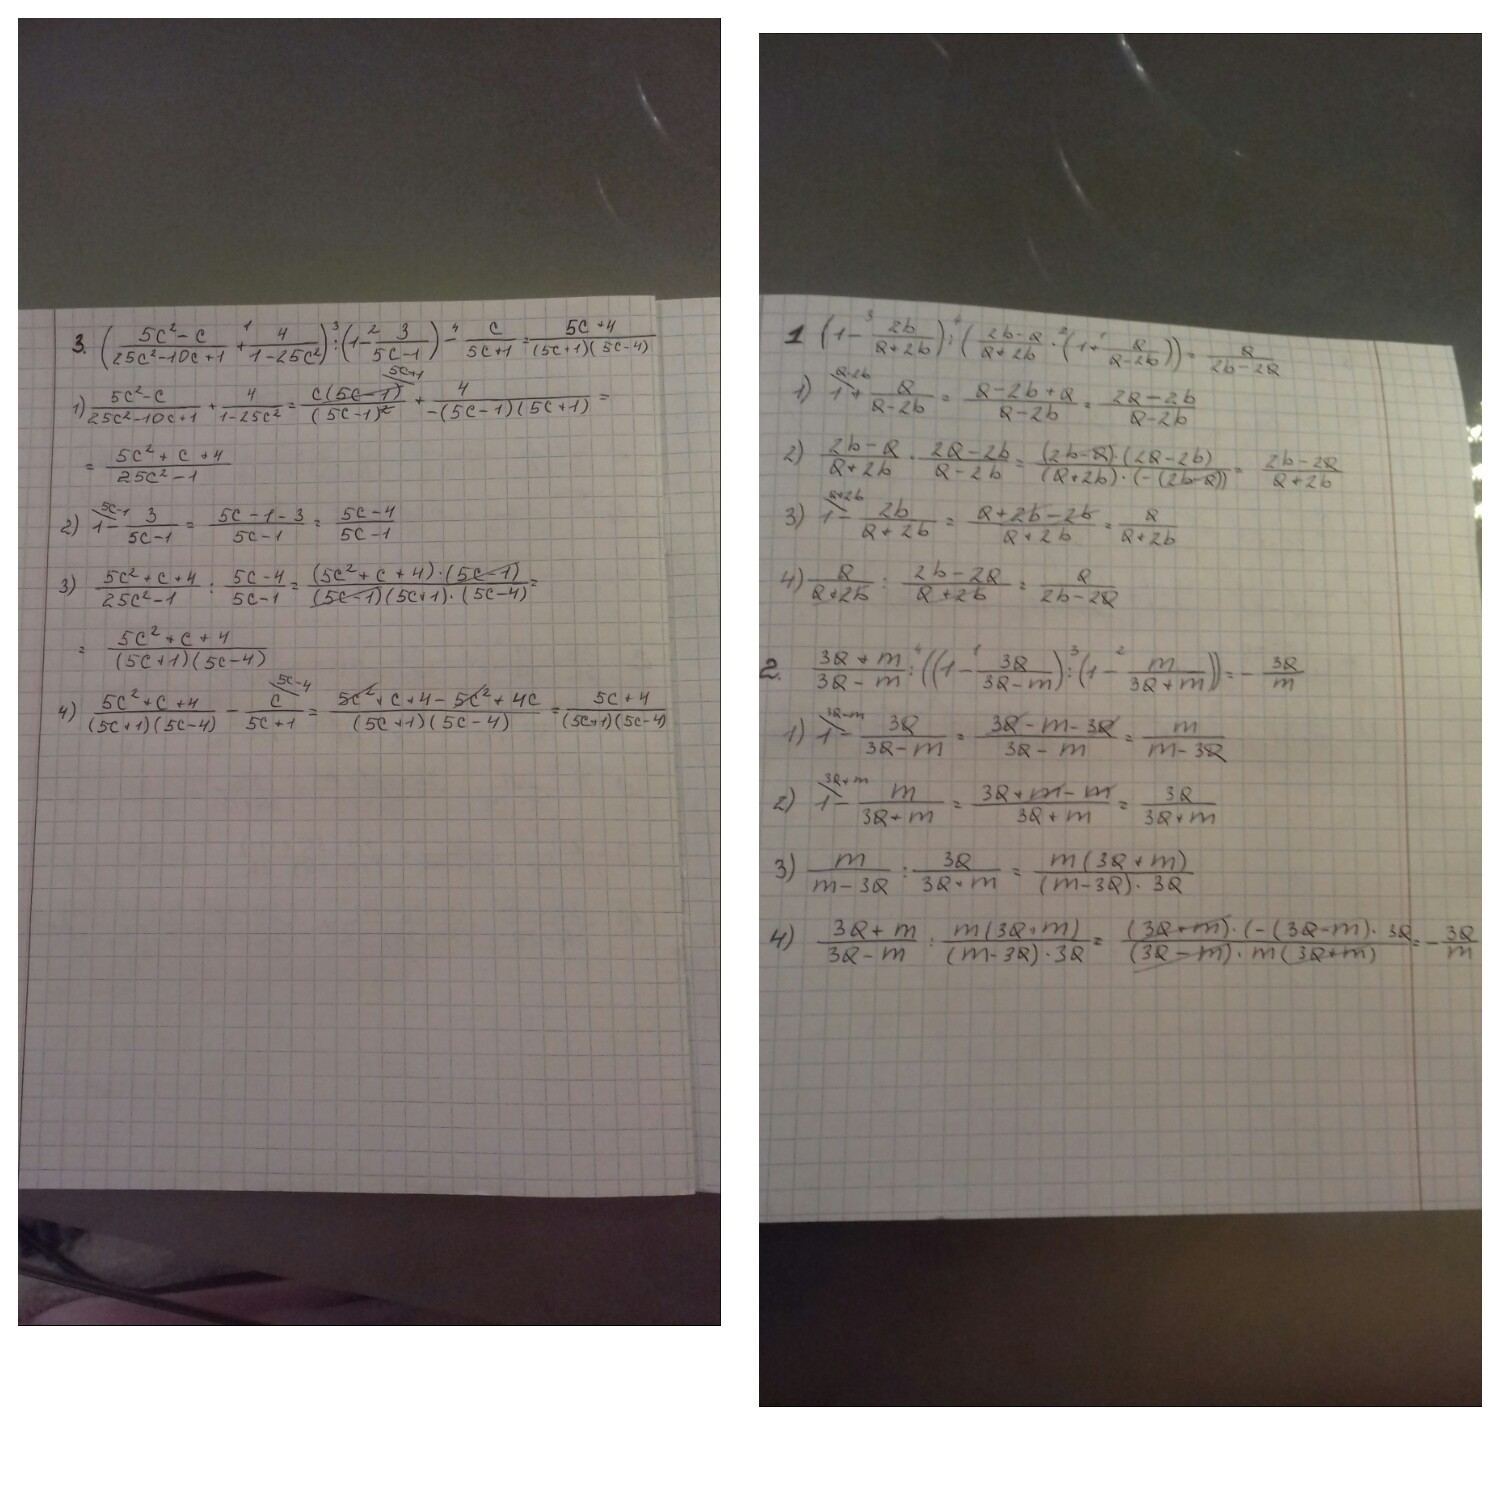 3. ((5c²-c)/(25c²-10c+1) +¹ 4/(1-25c²)) :³ (1 -² 3/(5c-1)) -⁴ c/(5c+1) = (5c+4)/((5c+1)(5c-4))
1) (5c²-c)/(25c²-10c+1) + 4/(1-25c²) = c(5c-1)\5c+1/(5c-1)² + 4/(-(5c-1)(5c+1)) =
= (5c²+c+4)/(25c²-1)
2) 1\5c-1 - 3/(5c-1) = (5c-1-3)/(5c-1) = (5c-4)/(5c-1)
3) (5c²+c+4)/(25c²-1) : (5c-4)/(5c-1) = ((5c²+c+4)·(5c-1))/((5c-1)(5c+1)·(5c-4)) =
= (5c²+c+4)/((5c+1)(5c-4))
4) (5c²+c+4)/((5c+1)(5c-4)) - c\5c-4/(5c+1) = (5c²+c+4-5c²+4c)/((5c+1)(5c-4)) = (5c+4)/((5c+1)(5c-4))
1 (1 -³ 2b/(a+2b)) :⁴ ((2b-a)/(a+2b) ·² (1 +¹ a/(a-2b))) = a/(2b-2a)
1) 1\a-2b + a/(a-2b) = (a-2b+a)/(a-2b) = (2a-2b)/(a-2b)
2) (2b-a)/(a+2b) · (2a-2b)/(a-2b) = ((2b-a)·(2a-2b))/((a+2b)·(-(2b-a))) = (2b-2a)/(a+2b)
3) 1\a+2b - 2b/(a+2b) = (a+2b-2b)/(a+2b) = a/(a+2b)
4) a/(a+2b) : (2b-2a)/(a+2b) = a/(2b-2a)
2. (3a+m)/(3a-m) :⁴ ((1 -¹ 3a/(3a-m)) :³ (1 -² m/(3a+m))) = - 3a/m
1) 1\3a-m - 3a/(3a-m) = (3a-m-3a)/(3a-m) = m/(m-3a)
2) 1\3a+m - m/(3a+m) = (3a+m-m)/(3a+m) = 3a/(3a+m)
3) m/(m-3a) : 3a/(3a+m) = m(3a+m)/((m-3a)·3a)
4) (3a+m)/(3a-m) : m(3a+m)/((m-3a)·3a) = (3a+m)·(-(3a-m)·3a/(3a-m)·m(3a+m) = - 3a/m